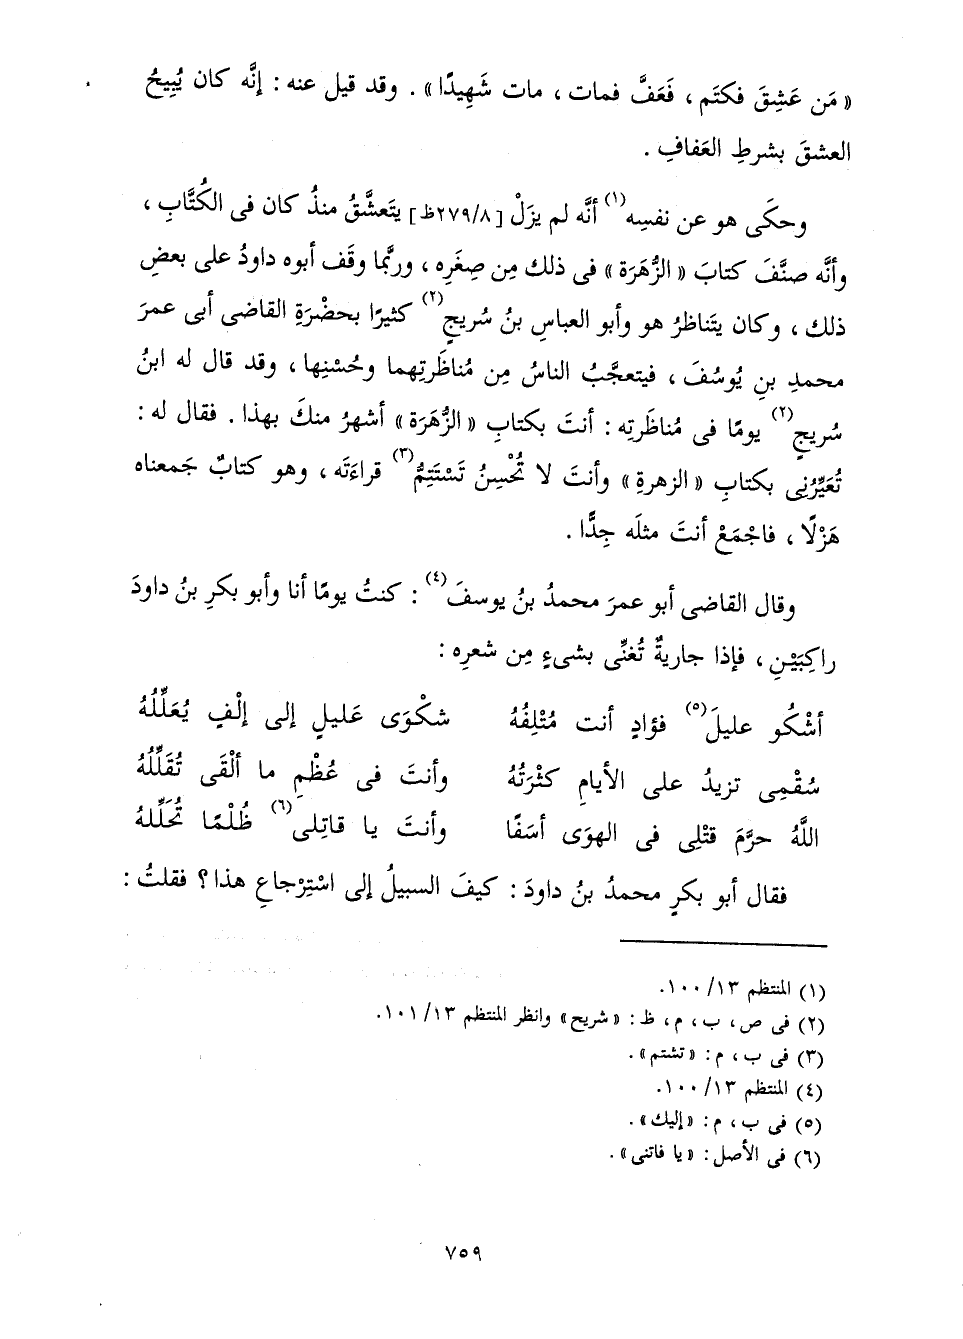 « مَن عَشِقَ فكتَم ، فَعَفَّ فمات ، مات شَهِيدًا » . وقد قيل عنه : إنَّه كان يُبِيحُ
العشقَ بشرطِ العَفافِ .
وحكَى هو عن نفسِه(١) أنَّه لم يزَلْ [٢٧٩/٨ظ] يتَعشَّقُ منذُ كان فى الكُتَّابِ ،
وأنَّه صنَّفَ كتابَ « الزُّهَرَة » فى ذلك مِن صِغَرِه ، وربَّما وقَف أبوه داودُ على بعضِ
ذلك ، وكان يتَناظرُ هو وأبو العباسِ بنُ سُريجٍ(٢) كثيرًا بحضْرَةِ القاضى أبى عمرَ
محمدِ بنِ يُوسُفَ ، فيتعجَّبُ الناسُ مِن مُناظَرتِهما وحُسْنِها ، وقد قال له ابنُ
سُريجٍ(٢) يومًا فى مُناظَرتِه : أنتَ بكتابِ « الزُّهَرَة » أشهرُ منكَ بهذا . فقال له :
تُعَيِّرُنِى بكتابِ « الزهرةِ » وأنتَ لا تُحْسِنُ تَسْتَتِمُّ(٣) قراءَتَه ، وهو كتابٌ جَمعناه
هَزْلًا ، فاجْمَعْ أنتَ مثلَه جِدًّا .
وقال القاضى أبو عمرَ محمدُ بنُ يوسفَ(٤) : كنتُ يومًا أنا وأبو بكرِ بنُ داودَ
راكِبَيْنِ ، فإذا جاريةٌ تُغنِّى بشىءٍ مِن شعرِه :
أشْكُو عليلَ(٥) فؤادٍ أنت مُتْلِفُهُ شكْوَى عَليلٍ إلى إلْفٍ يُعَلِّلُهُ
سُقْمِى تزيدُ على الأيامِ كثْرَتُهُ وأنتَ فى عُظْمِ ما ألْقَى تُقَلِّلُهُ
اللَّهُ حرَّمَ قتْلِى فى الهوَى أسَفًا وأنتَ يا قاتِلى(٦) ظُلْمًا تُحَلِّلهُ
فقال أبو بكرٍ محمدُ بنُ داودَ : كيفَ السبيلُ إلى اسْتِرْجاعِ هذا ؟ فقلتُ :
(١) المنتظم ١٣/ ١٠٠.
(٢) فى ص، ب، م، ظ: «شريح» وانظر المنتظم ١٣/ ١٠١.
(٣) فى ب، م: «تشتم».
(٤) المنتظم ١٣/ ١٠٠.
(٥) فى ب، م: «إليك».
(٦) فى الأصل: «يا فاتنى».
٧٥٩